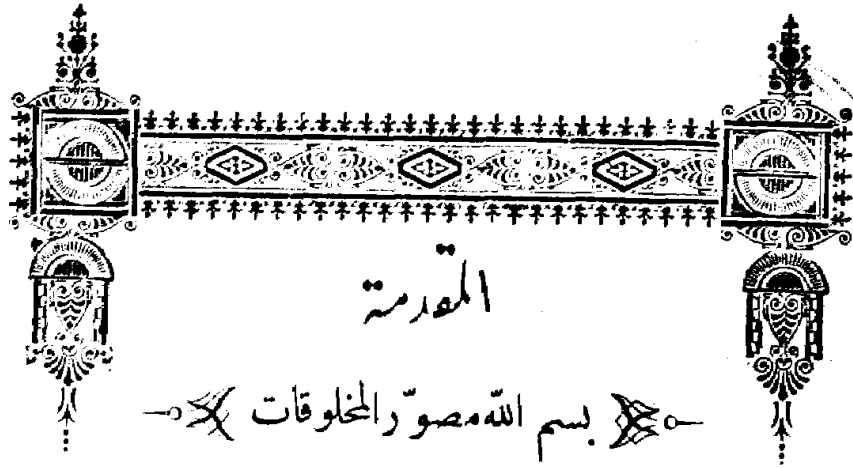 المقدمة
بسم اللّه مصوّر المخلوقات